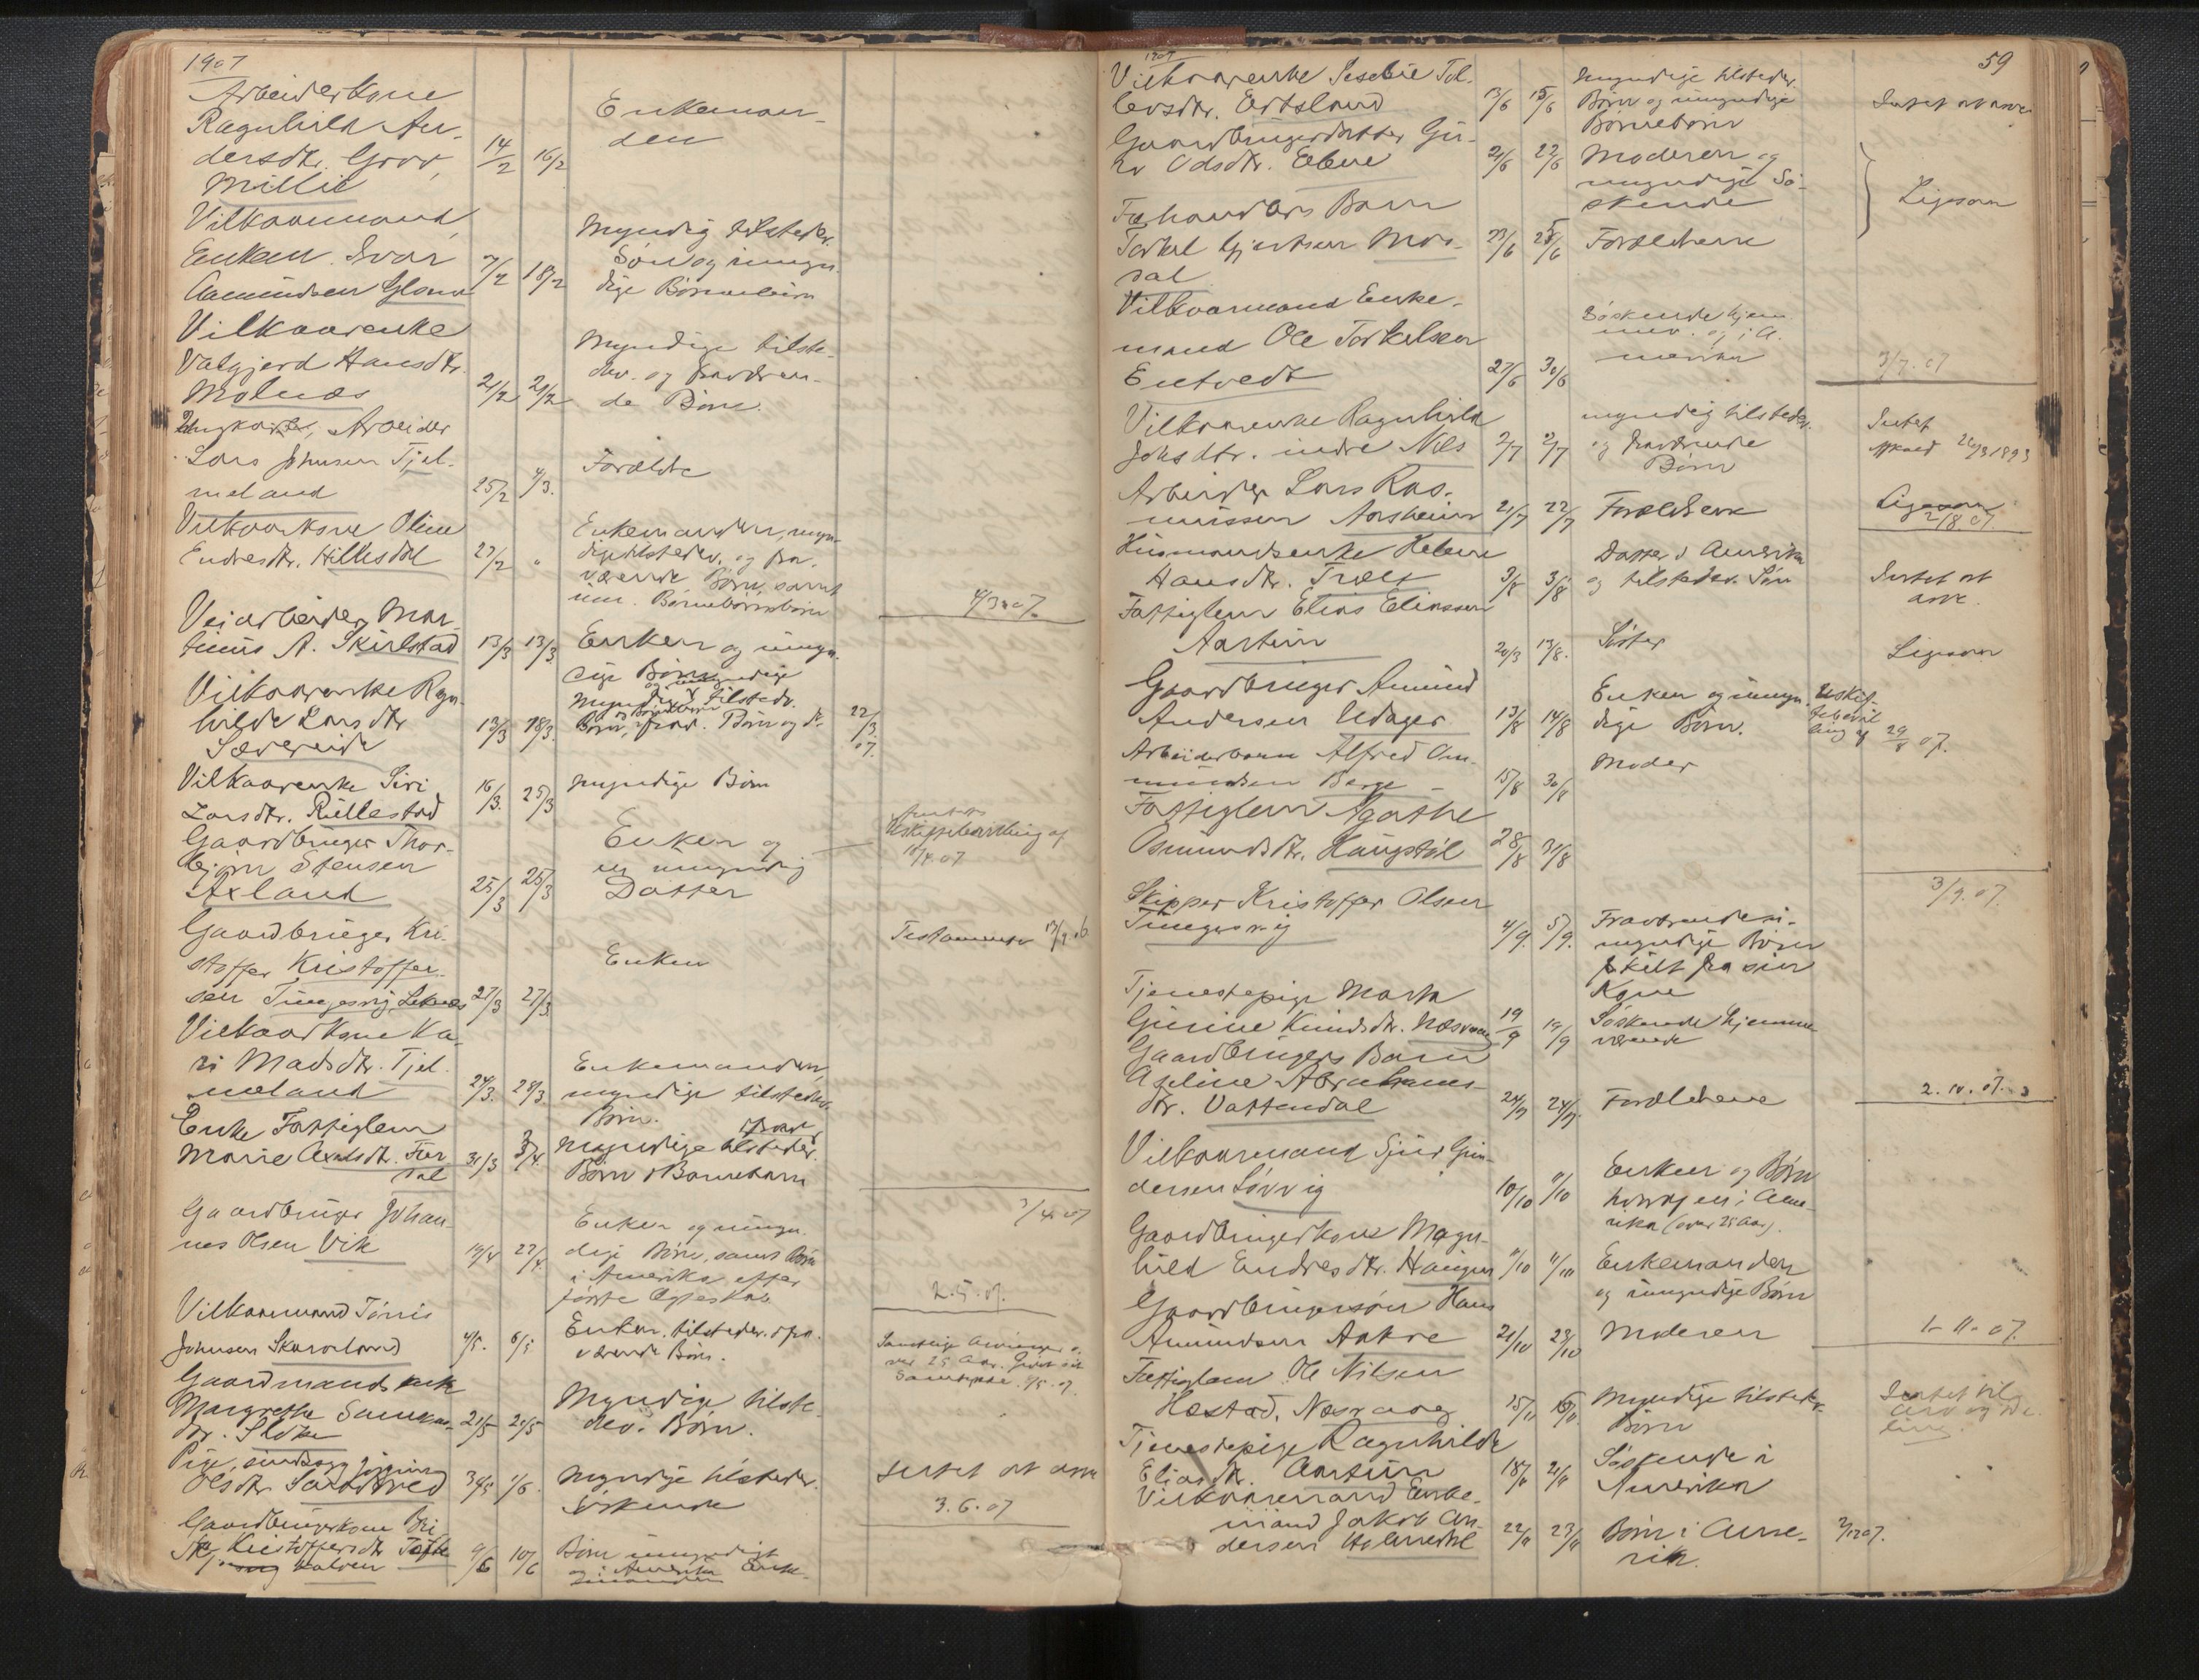 1907
Arbeiderkone
Ragnhild An-
dersdtr. Grov,
Millie
14/2 16/2
Enkeman-
den
Vilkaarmand,
Enkem. Ivar
Aamundsen
7/2 18/2
Myndig tilstedev.
Søn og umyn-
dige Børnebørn
Vilkaarenke
Valgjerd Hansdtr.
Molnæs
21/2 21/2
Myndige tilste-
dev. og fraværen-
de Børn.
Ungkarl, Arbeider
Lars Johnsen Tjel-
meland
25/2 4/3.
Forældre
Vilkaarkone Oline
Endresdtr. Hillesdal
27/2 "
Enkemanden, myn-
dige tilstedev. og fra-
værende Børn, samt
um. Børnebørnsbørn
4/3 07.
Veiarbeider Mar-
tinus A. Skirlstad
13/3 13/3
Enken og umyn-
dige Børn
Vilkaarenke Ragn-
hilde Larsdtr
Sævereide
13/3 18/3.
og umyndige
tilstedv.
Børn, frav. Børn og
22/3 07.
Vilkaarenke Siri
Larsdtr. Rullestad
16/3. 25/3
Myndige Børn
Gaardbruger Thor-
bjørn Stensen
Axland
25/3 25/3
Enken og
en umyndig
Datter
Uskiftebevilling af
10/4 07
Gaardbruger Kri-
stoffer Kristoffer-
sen Tungesvig, Leknes
27/3 27/3
Enken
Testamente 17/9.06
Vilkaarkone Ka-
ri Madsdtr. Tjel-
meland
24/3. 28/3
Enkemanden,
myndige tilstedev.
Børn.
Enke Fattiglem
Marie Axelsdtr. For
dal
31/3 3/4.
Myndige tilstedev.
Børn & Barnebarn
3/4.07
Gaardbruger Johan-
nes Olsen Vik
19/4 22/4.
Enken og umyn-
dige Børn, samt Børn
i Amerika efter
første Ægteskab
2.5.07.
Vilkaarmand Tønnis
Johnsen
4/5. 6/5
Enken, tilstedev. & fra-
værende Børn.
Samtlige Arvinger o-
ver 25 Aar. Givet sit
Samtykke.
Gaardmandsenke
Margrethe
dtr. Støle
21/5 21/5
Myndige tilste-
dev. Børn.
Pige, sindssyg
Olsdtr
30/5 1/6.
Myndige tilstedev.
Søskende
Intet at arve
3.6.07
Gaardbrugerkone Bri
ta Kristoffersdtr
9/6 10/6
Børn umyndigt
og i Amerika Enke-
manden
1907
59
Vilkaarenke
levsdtr. Ertsland
13/6 15/6
Myndige tilstedev.
Børn og umyndige
Børnebørn
Intet at arve
Gaardbrugerdatter Gu-
ro Odsdtr. Ebne
21/6 22/6
Moderen og
myndige Sø-
skende
Ligesaa
Fæhandlers Barn
Torkel Gjertsen Mos-
dal
23/6 25/6
Forældrene
Vilkaarmand Enke-
mand Ole Torkelsen
Entvedt
27/6 30/6
Søskende hjem-
mev. og i A-
merika
3/7.07
Vilkaarenke Ragnhild
Johsdtr. indre Næs
2/7 2/7
myndig tilstedev.
og fraværende
Børn
Intet
26/3 1893
Arbeider Lars Ras-
mussen Aarsheim
21/7 22/7
Forældrene
Ligesaa
2/8 07.
Husmandsenke Helene
Hansdtr. Træet
3/8 3/8
Datter i Amerika
og tilstedev. Søn
Intet at
arve.
Fattiglem Elias Eliassen
Aartun
20/3 13/8.
Søster
Ligesaa
Gaardbruger Amund
Andersen Udager
13/8 14/8
Enken og umyn-
dige Børn.
Uskif-
tebevil
ling af 29/8 07.
Arbeiderbarn Alfred Om-
mundsen Berge
15/8 30/8
Moder
Fattiglem Agathe
Osmundsdtr. Haugstøl
28/8 31/8
3/9.07.
Skipper Kristoffer Olsen
Tungesvig
4/9. 5/9.
Fraværende u-
myndige Børn
skilt fra sin
Kone
Tjenestepige Marta
Gurine Knudsdtr. Næsvaag
19/9 19/9
Søskende hjemme
værende
Gaardbrugers Barn
Aseline Abrahams-
dtr. Vattendal
24/9 24/9.
Forældrene
2.10.07.
Vilkaarmand Sjur Gun-
dersen Løvvig
10/10 11/10
Enken og Børn
hvoraf en i Ame-
rika (over 25 Aar).
Gaardbrugerkone Magn-
hild Endresdtr. Haugen
11/10 11/10
Enkemanden
og umyndige Børn
Gaardbrugersøn Hans
Amundsen Aakre
21/10 23/10
Moderen
1-11-07.
Fattiglem Ole Nilsen
Hæstad, Næsvaag
15/11
Myndige tilstedev.
Børn
Intet til
Tjenestepige Ragnhilde
Eliasdtr. Aartun
18/11 21/11
Søskende i
Amerika
Vilkaarmand Enke-
mand Jakob An-
dersen Holmedal
22/11 23/11
Børn i Ame-
rika.
2/12 07.